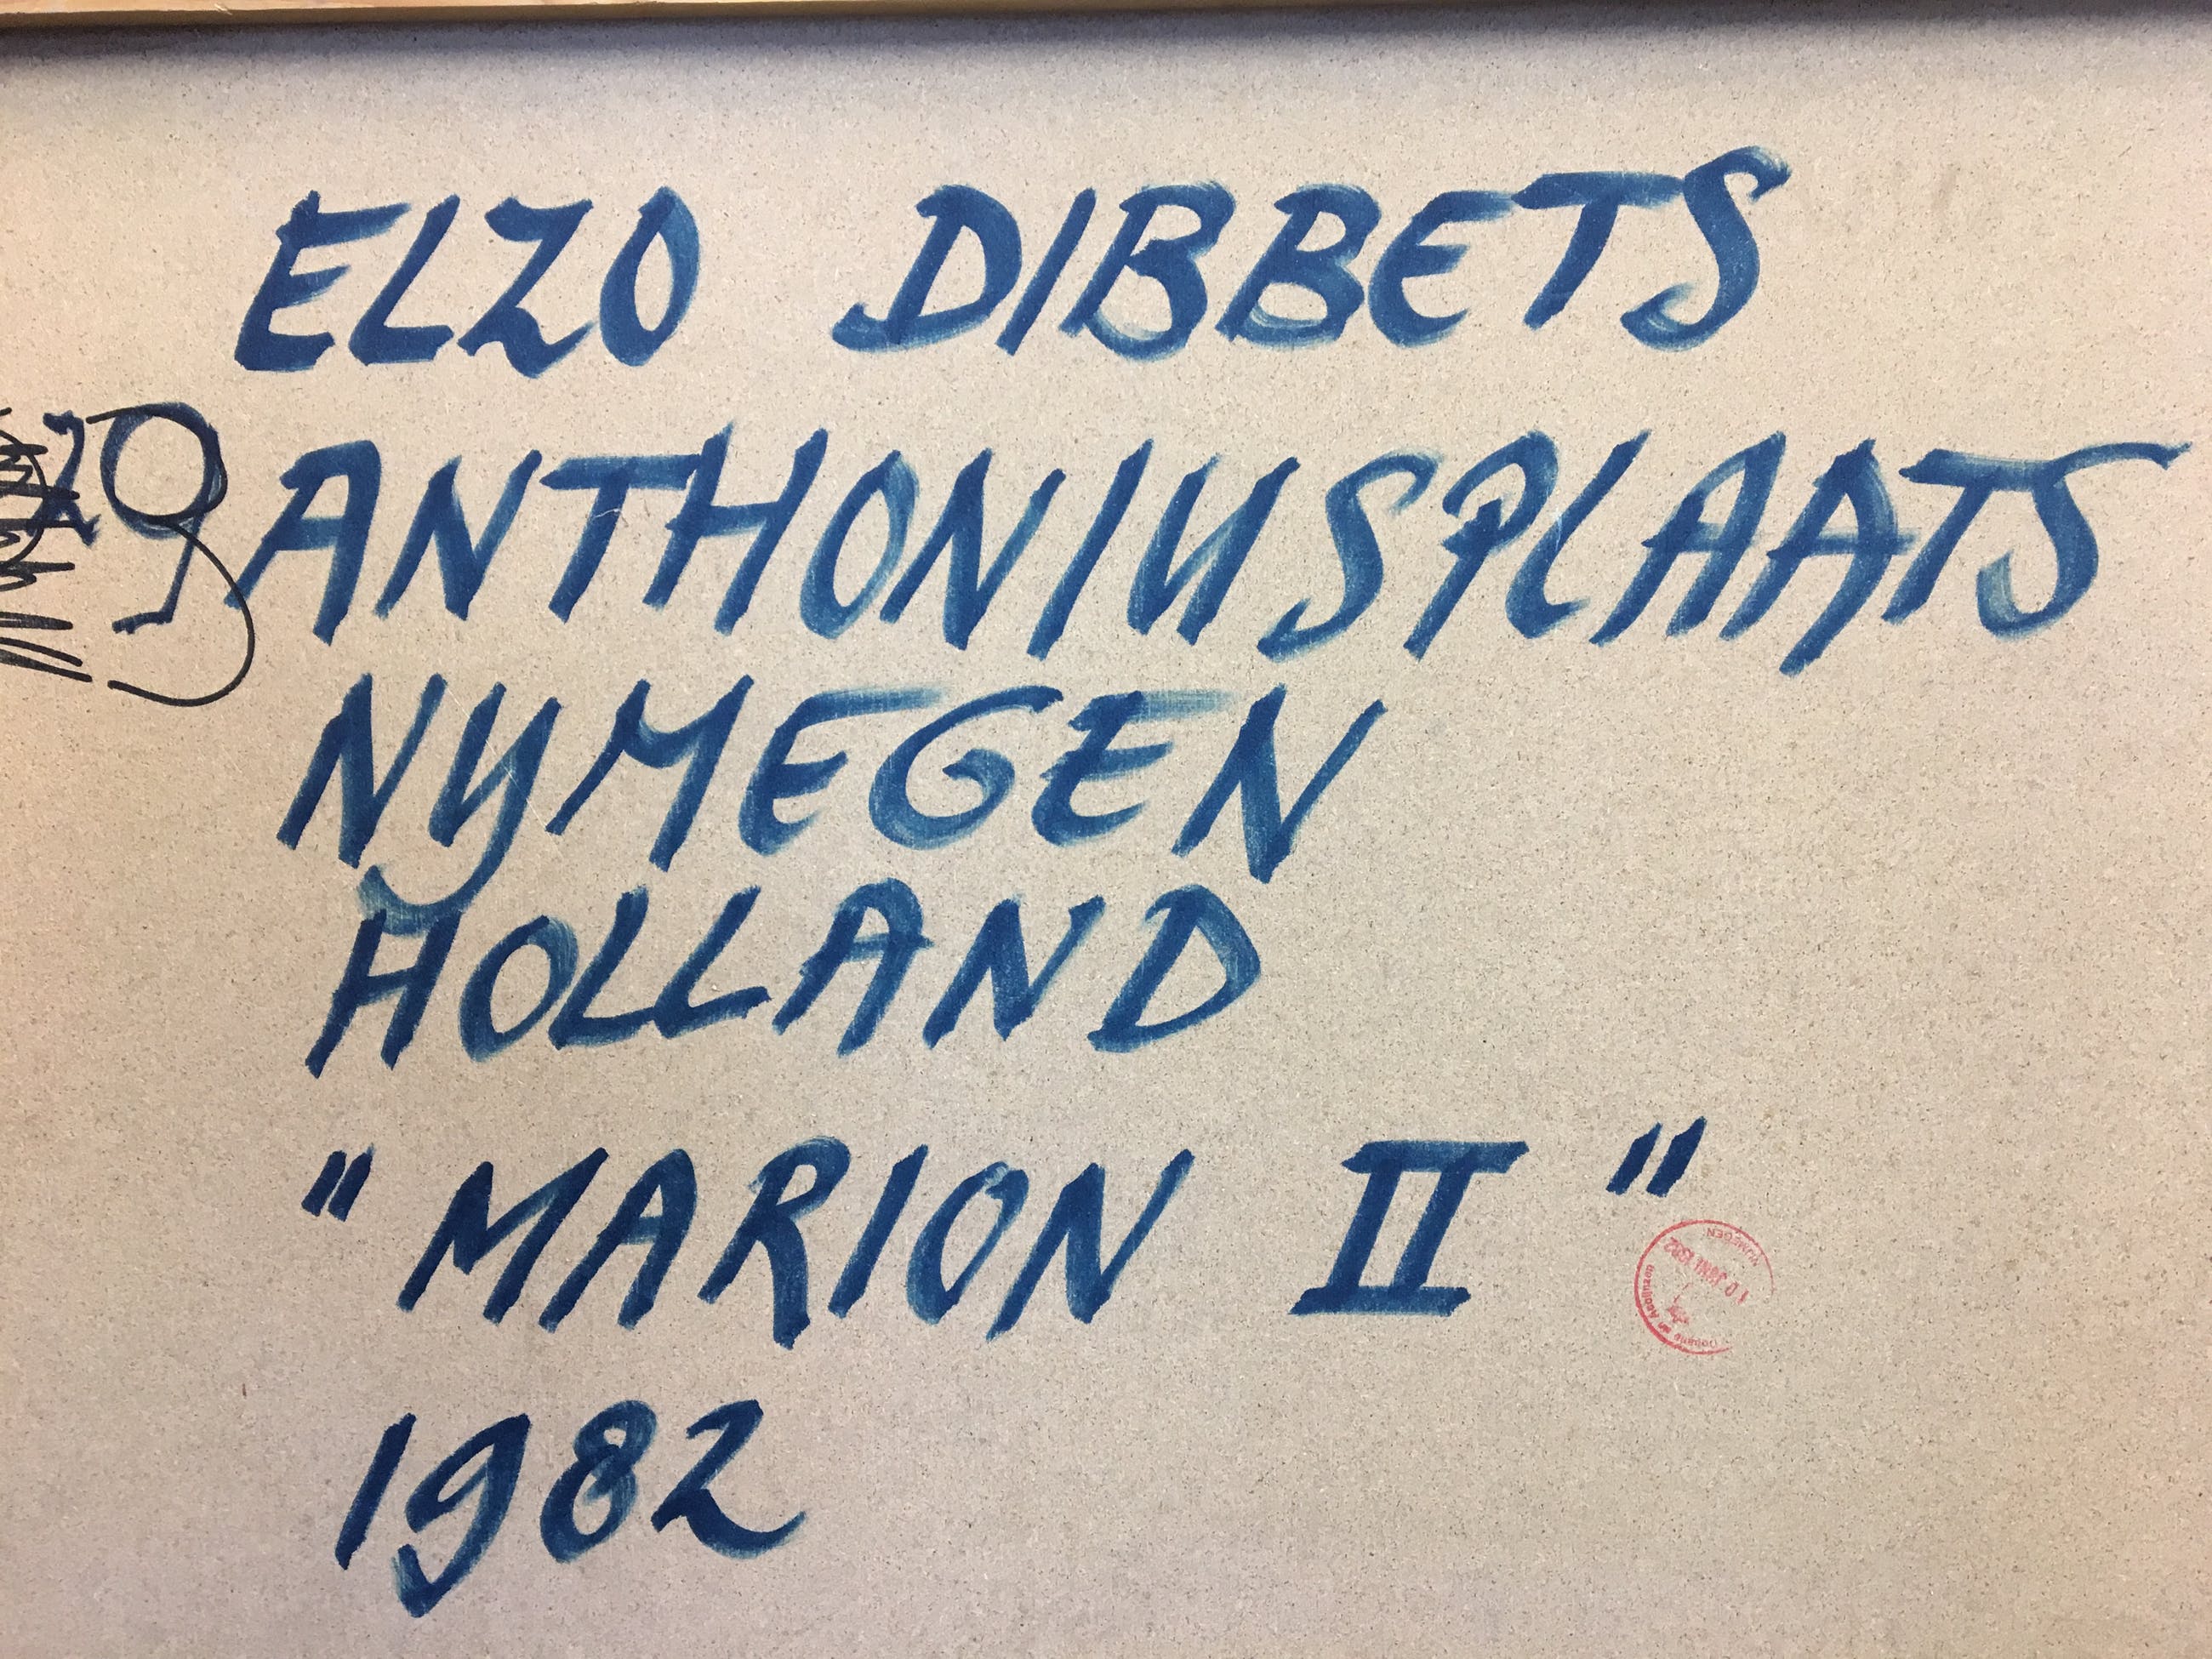 ELZO DIBBETS
ANTHONIUSPLAATS
NYMEGEN
HOLLAND
"MARION II"
1982
NIJMEGEN
10 JUNI 1982